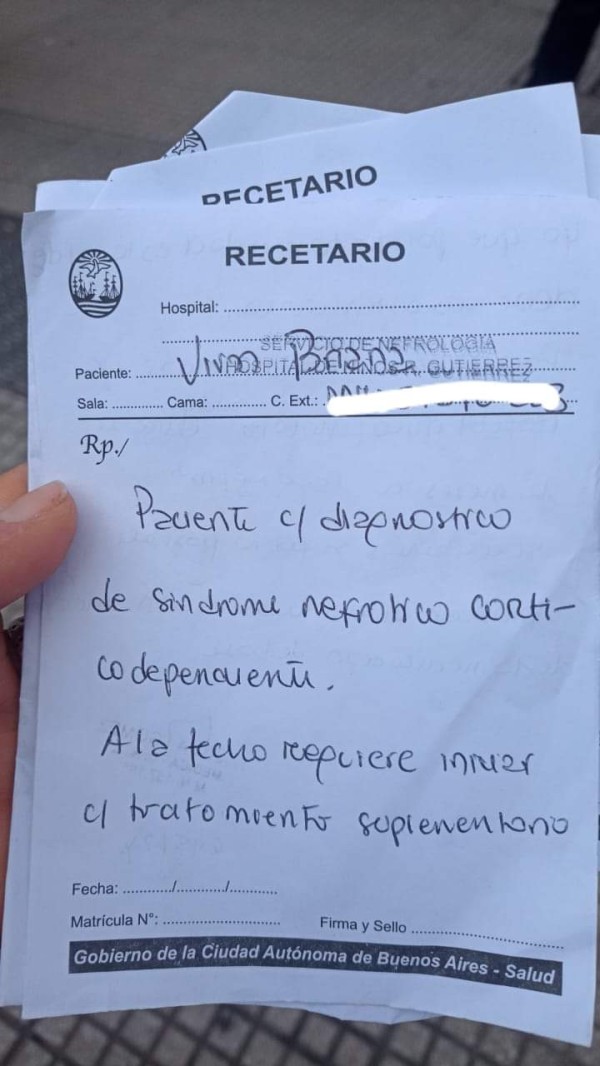 RECETARIO
RECETARIO
Hospital:
SERVICIO DE NEFROLOGIA
HOSPITAL DE NIÑOS R. GUTIERREZ
Paciente:
Sala: Cama: C. Ext.:
Rp./
Paciente c/ diagnostico
de sindrome nefrotico corti-
codependiente.
A la fecha requiere iniciar
c/ tratamiento suplementario
Fecha: / /
Matrícula N°: Firma y Sello
Gobierno de la Ciudad Autónoma de Buenos Aires - Salud